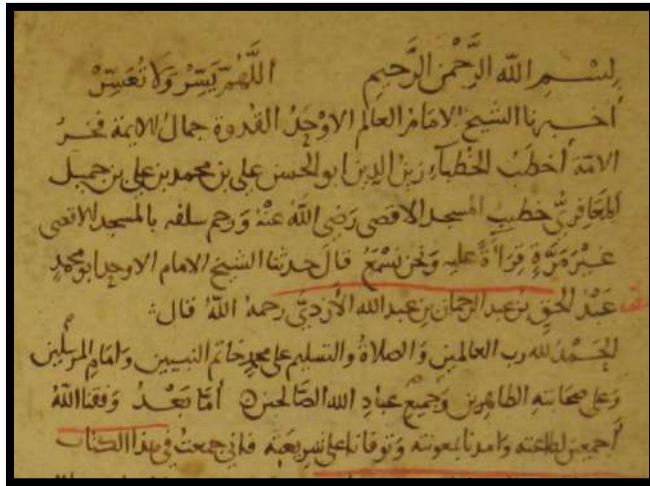 بسم الله الرحمن الرحيم اللَّهُمَّ يَسِّرْ وَلَا تُعَسِّرْ
أخبرنا الشيخ الامام العالم الاوحد القدوة جمال الايمة فخر
الامة أخطب الخطباء زين الدين ابو الحسن علي بن محمد بن علي بن جميل
المعافري خطيب المسجد الاقصى رضي الله عنه ورحم سلفه بالمسجد الاقصى
غير مرة قراةً عليه ونحن نسمع قال حدثنا الشيخ الامام الاوحد ابو محمد
عبد الحق بن عبد الرحمان بن عبد الله الأزدي رحمه الله قال
الحمد لله رب العالمين والصلاة والتسليم على محمد خاتم النبيين وامام المرسلين
وعلى صحابته الطاهرين وجميع عباد الله الصالحين أما بعد وفقنا الله
أجمعين لطاعته وامدنا بمعونته وتوفانا على شريعته فاني جمعت في هذا الكتاب